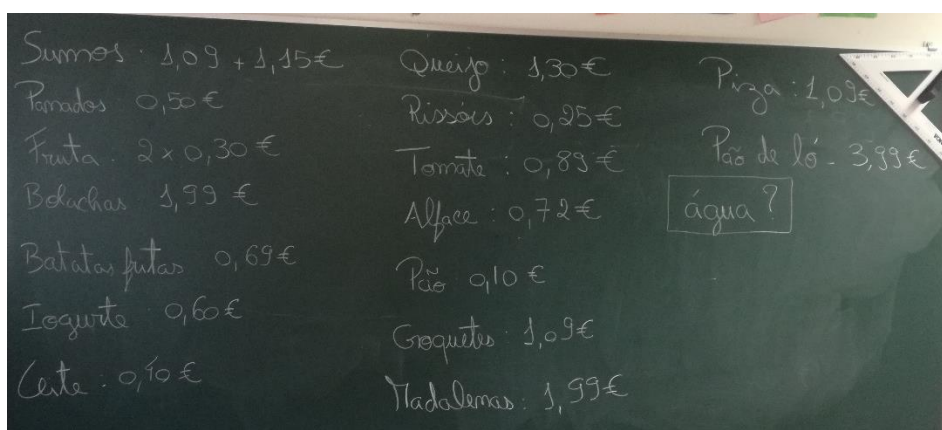 Sumos: 1,09 + 1,15€
Panados: 0,50€
Fruta: 2 x 0,30€
Bolachas 1,99 €
Batatas fritas 0,69€
Iogurte 0,60€
Leite: 0,10€
Queijo: 1,30€
Rissóis: 0,25€
Tomate: 0,89€
Alface: 0,72€
Pão 0,10 €
Croquetes: 1,09€
Madalenas: 1,99€
Piza: 1,09€
Pão de ló - 3,99€
água?